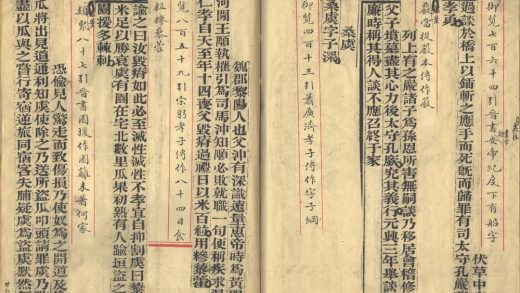 御覽七百六十四引晉書安帝紀度下有船字
伏草中
過談於橋上以鍤斬之應手而死既而歸罪有司太守孔嚴
孝勇
嚴當從嚴本傳作
列上宥之嚴諸子為孫恩所害無嗣談乃移居會稽修
父子墳墓盡其心力後太守孔廞究其義行元興三年舉談
廉時稱其得人談不應召終于家
桑虞
桑虞字子深
御覽四百十三引蕭廣濟孝子傳作字子綱
魏郡黎陽人也父沖有深識遠量惠帝時為黃門
河間王顒執權引為司馬沖知顒必敗就職一旬便稱疾求
仁孝自天至年十四喪父毀瘠過禮日以米百粒用糝藜藿
御覽八百五十九引宋躬孝子傳作八十四日食
粒糝藜藿
諭之曰汝毀瘠如此必至滅性滅性不孝宜自抑割虞曰藜
米足以勝哀虞有園在宅北數里瓜果初熟有人踰垣盜之
園援多棘刺
類聚八十七引晉書園援作園
慿偷見人驚走而致傷損乃使奴為之開道及偷
瓜將出見道通利知虞使除之乃送所盜瓜叩頭請罪虞乃
盡以瓜與之嘗行寄宿逆旅同宿客失脯疑虞為盜虞默然